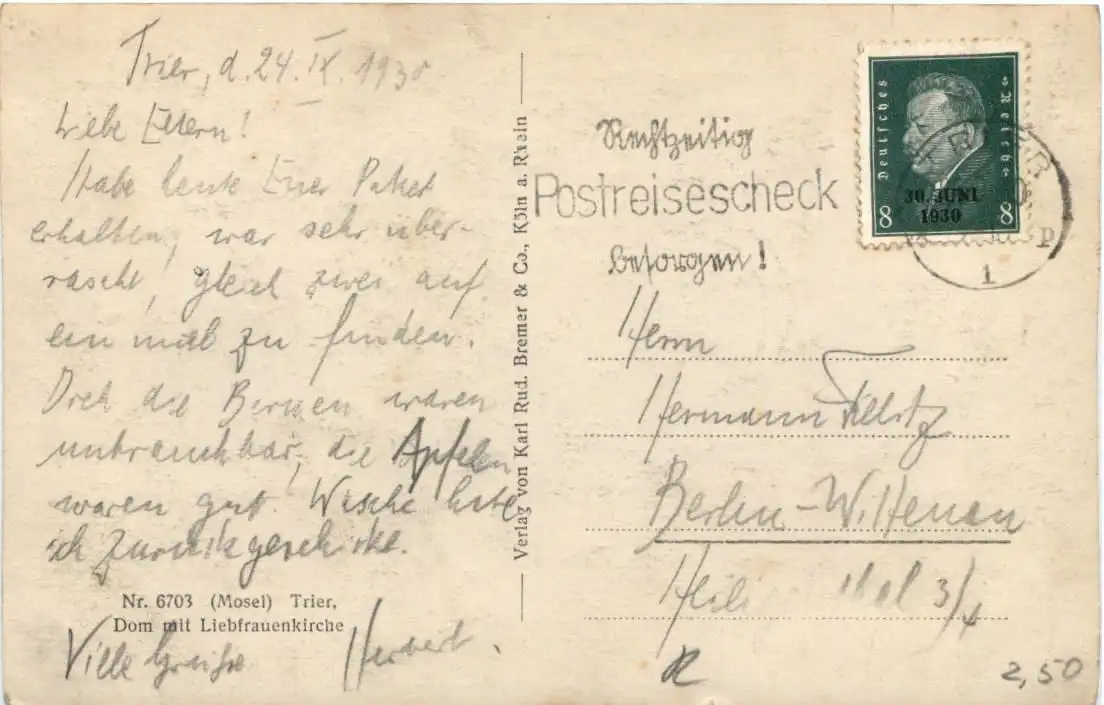 Trier, d. 24. IX. 1930
Liebe Eltern!
Habe heute Euer Paket
erhalten, war sehr über-
rascht, gleich zwei auf
ein mal zu finden.
die Birnen waren
unbrauchbar, die Apfeln
waren gut. Wäsche habe
ich zurückgeschickt.
Nr. 6703 (Mosel) Trier,
Dom mit Liebfrauenkirche
Viele Grüße Herbert.
Verlag von Karl Rud. Bremer & Co., Köln a. Rhein
Rechtzeitig
Postreisescheck
besorgen!
Deutsches Reich
30. JUNI
1930
8 8
1
Herrn
Hermann
Berlin-Wittenau
3/4
2,50